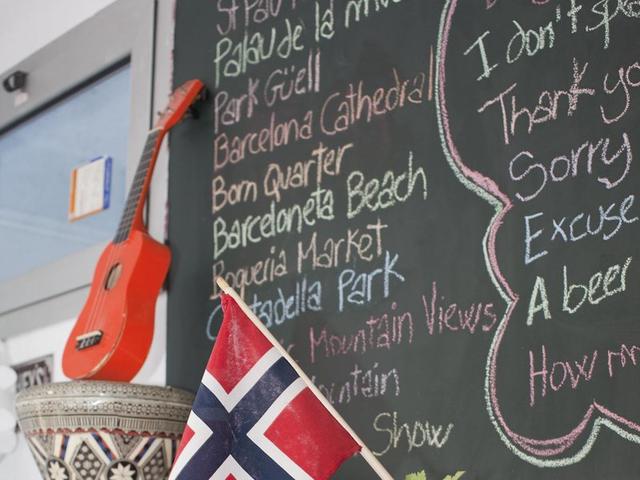 St Pau
Palau de la
Park Güell
Barcelona Cathedral
Born Quarter
Barceloneta Beach
Boqueria Market
Park
Mountain Views
Show
I don't
Thank
Sorry
Excuse
A beer
How